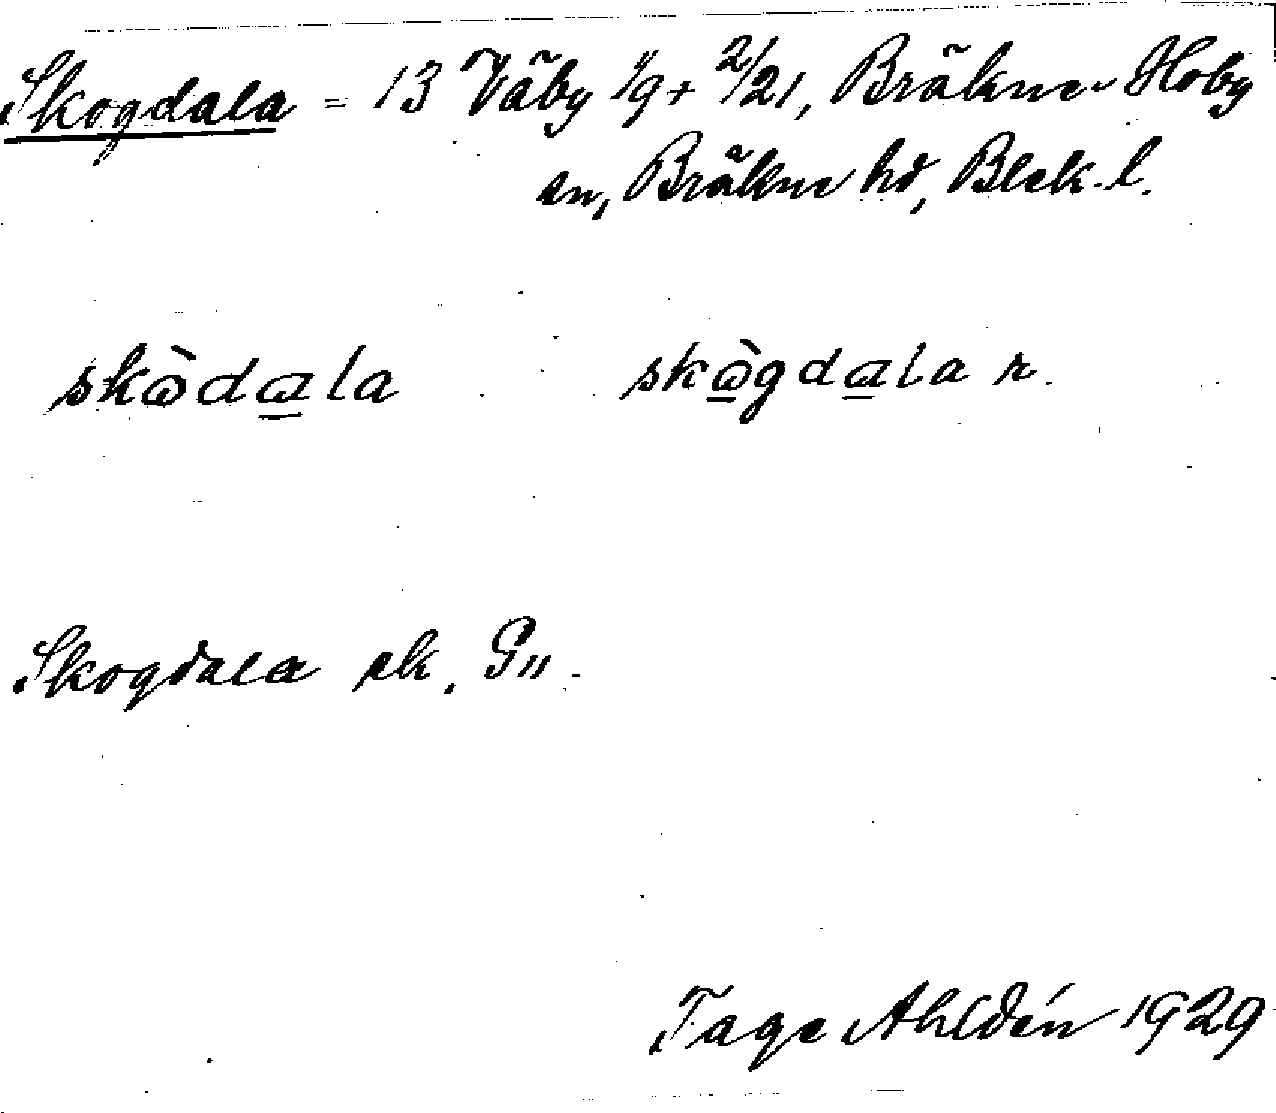 Skogdala = 13 Väby 1/9 + 2/21, Bräkne-Hoby
sn, Bräkne hd, Blek. l.
skὼdɷla skὼgdɷla r.
Skogdala ek. G11.
Tage Ahldén 1929